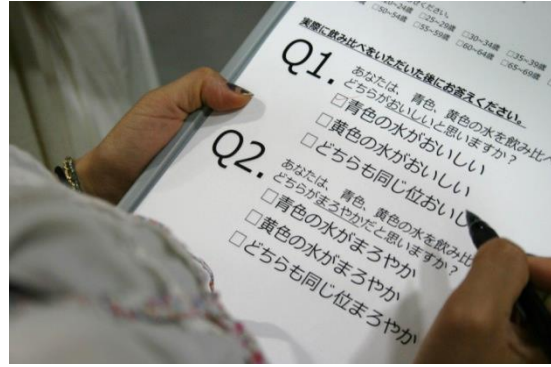 ください。
20~24歳 □25~29歳 □30~34歳 □35~39歳
□50~54歳 □55~59歳 □60~64歳 □65~69歳
実際に飲み比べをいただいた後にお答えください。
Q1. あなたは、青色、黄色の水を飲み比べ
どちらがおいしいと思いますか？
□青色の水がおいしい
□黄色の水がおいしい
□どちらも同じ位おいし
Q2. あなたは、青色、黄色の水を飲み比
どちらがまろやかだと思いますか？
□青色の水がまろやか
□黄色の水がまろやか
□どちらも同じ位まろやか